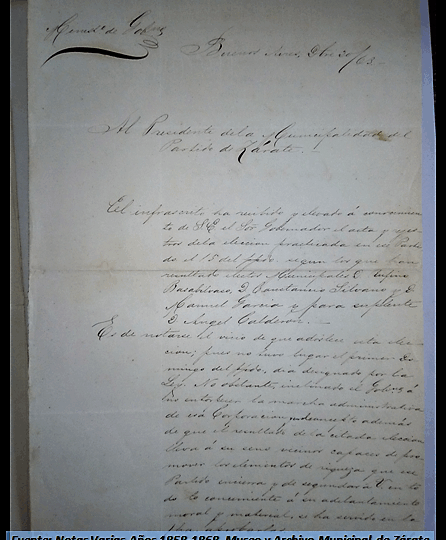 Minist.º de Gob.no
Buenos Aires, Dbre 20/63.
Al Presidente de la Municipalidad del
Partido de Zárate.
El infrascrito ha recibido y elevado á conocimien
to de S.E. el Sor. Gobernador el acta y
tros de la eleccion practicada en ese Parti
do el 13 del ppdo, segun los que han
resultado electos Municipales D.
Basahilvaso, D. Constancio Silvano y D.
Manuel Garcia y para suplente
D. Angel Calderon.
Es de notarse el vicio de que adolece esta elec
cion; pues no tuvo lugar el primer Do
mingo del ppdo, dia designado por la
Ley. No obstante, inclinado el Gob.no á
no entorpecer la marcha administrativa
de esa Corporacion, y además
de que el resultado de la citada eleccion
lleva á su seno vecinos capaces de pro
mover los elementos de riqueza que ese
Partido encierra y de segundar á V. en to
do lo concerniente á su adelantamiento
moral y material, se ha servido
Fuente: Notas Varias Años 1858-1868. Museo y Archivo Municipal de Zárate